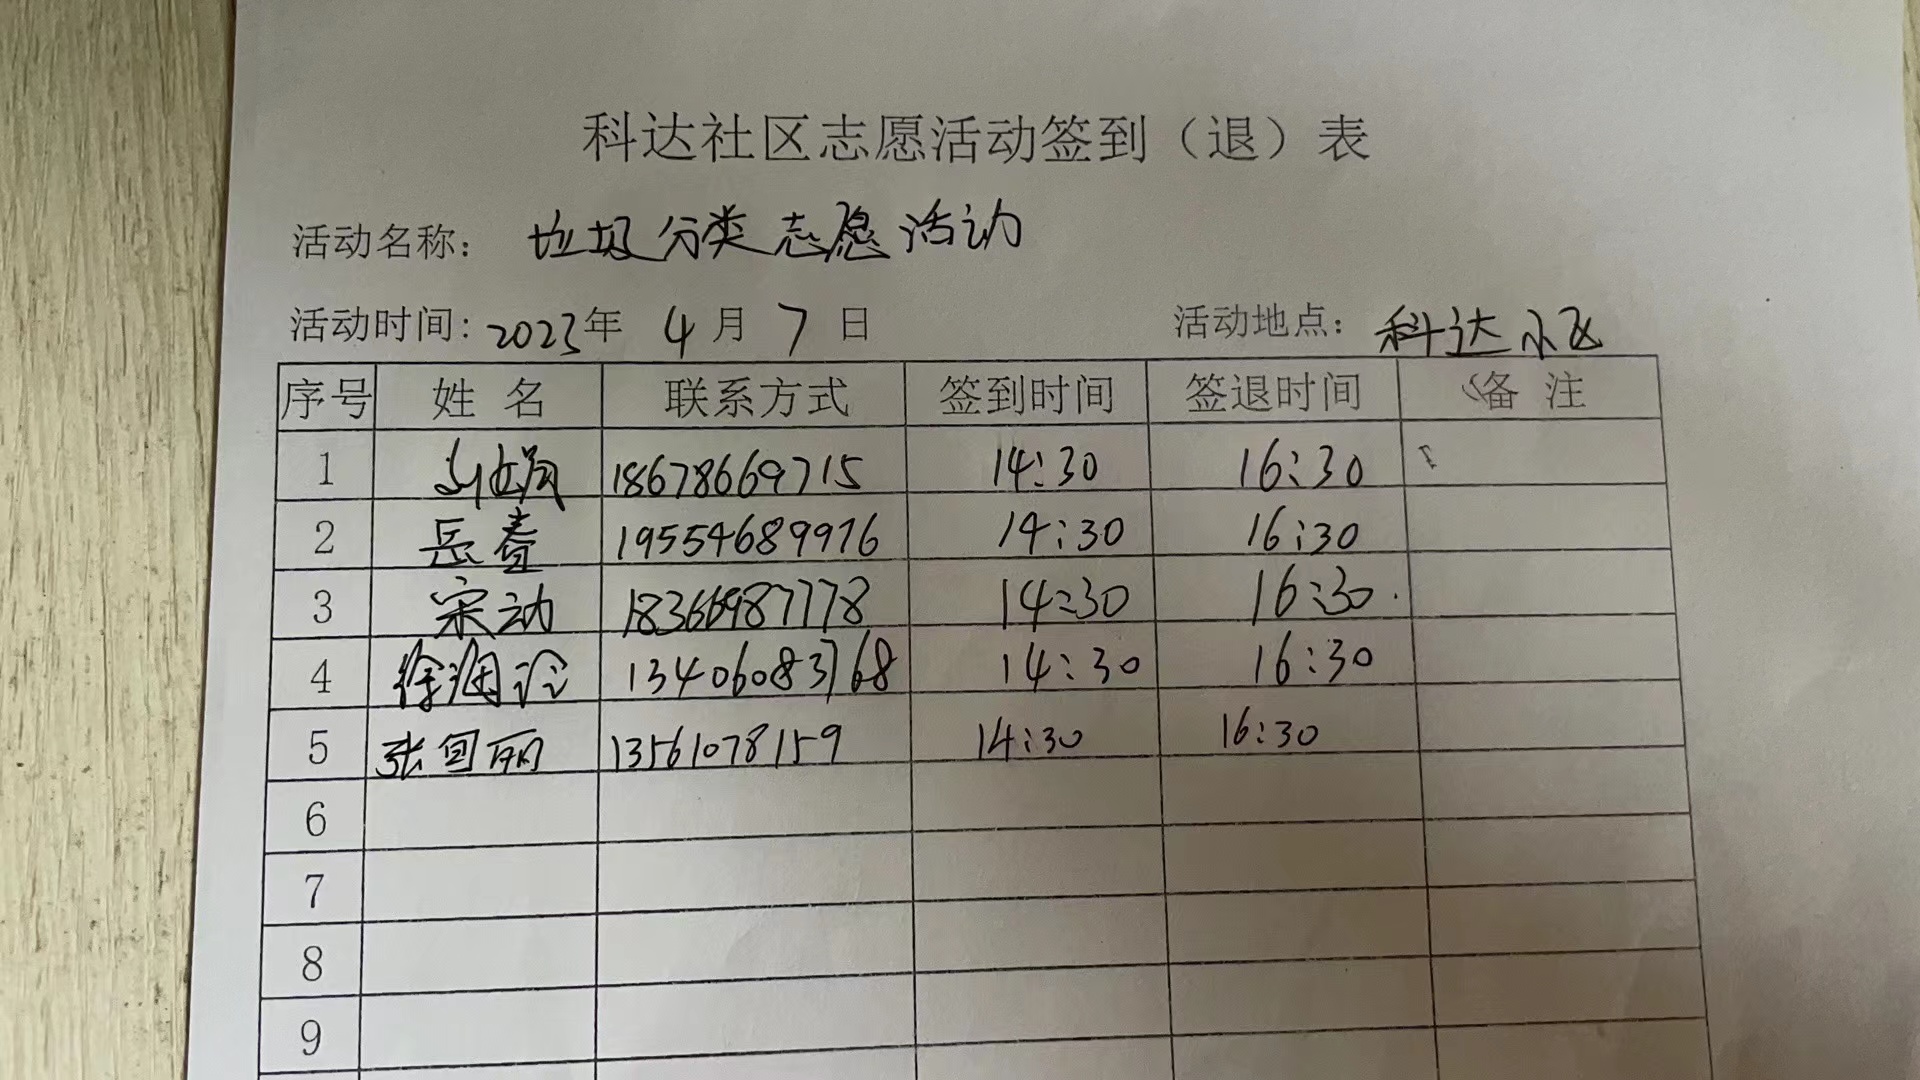 科达社区志愿活动签到（退）表
活动名称： 垃圾分类志愿活动
活动时间: 2023年 4月 7日 活动地点: 科达小区
序号 姓 名 联系方式 签到时间 签退时间 备 注
1 18678669715 14:30 16:30
2 岳 19554689976 14:30 16:30
3 宋动 18366987778 14:30 16:30
4 徐 13406083768 14:30 16:30
5 张 丽 13561078159 14:30 16:30
6
7
8
9